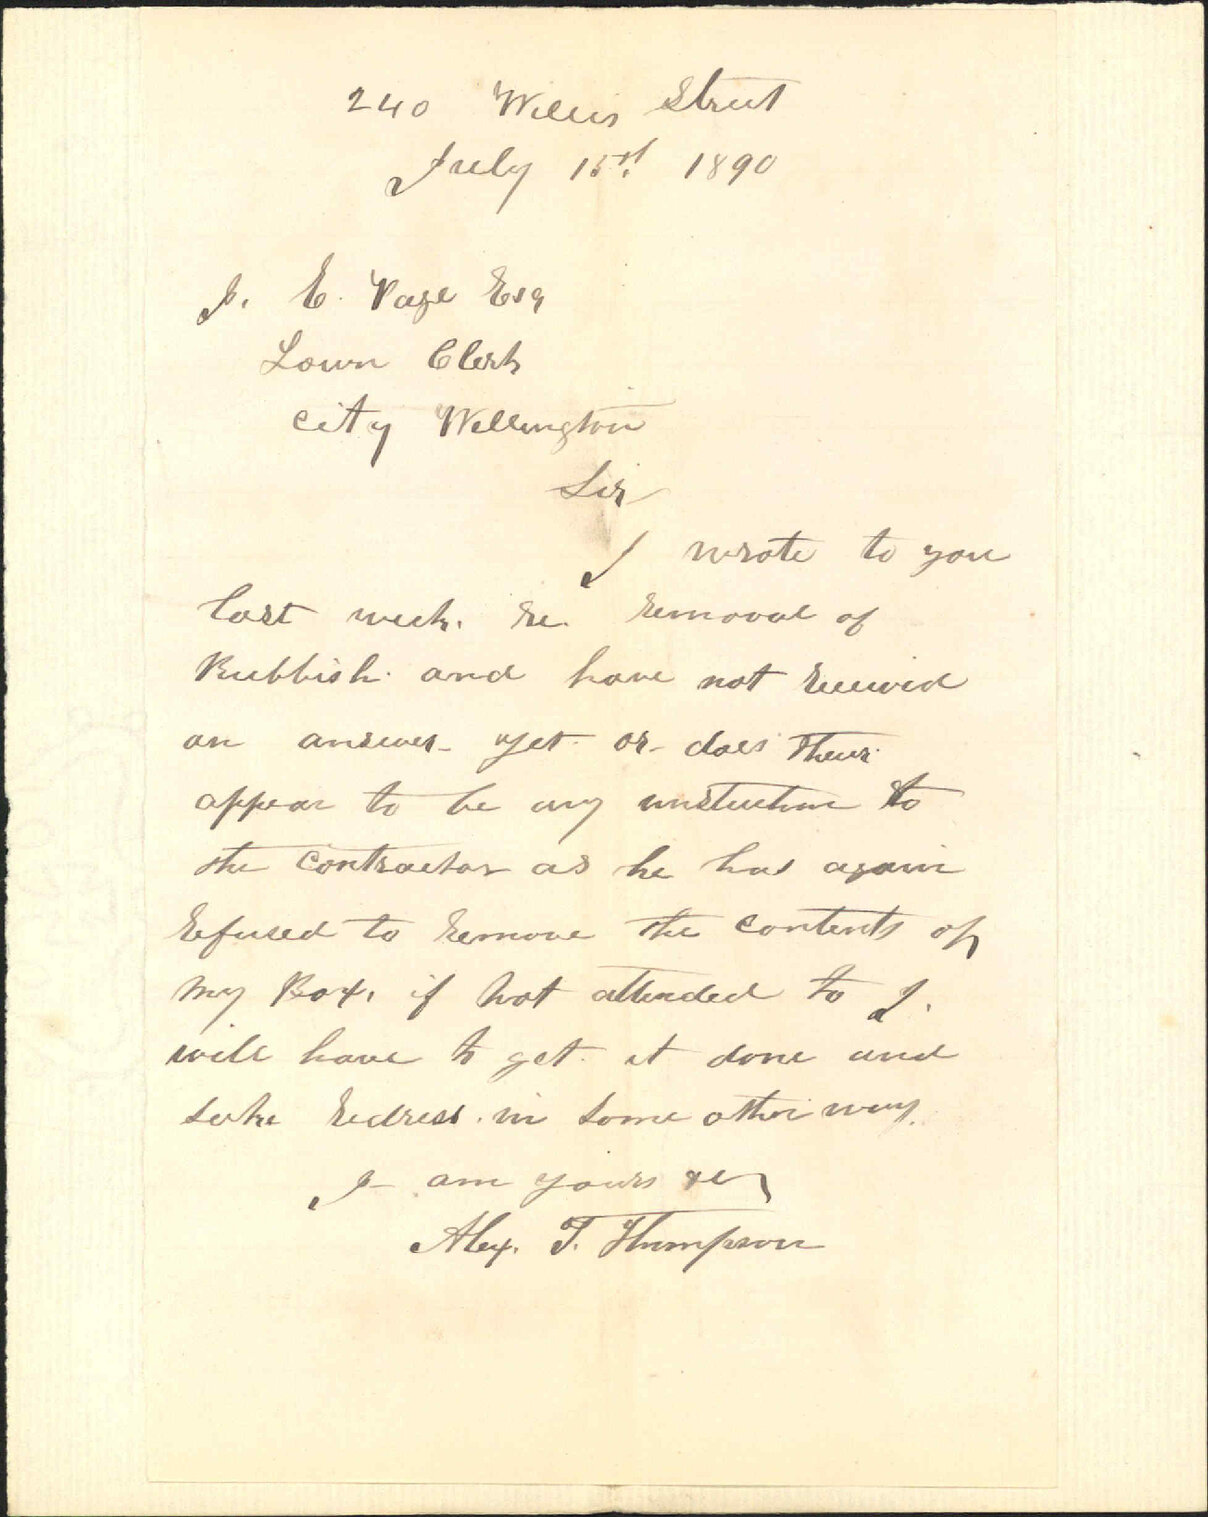 240 Willis Street
July 15st. 1890
J. E. Page Esq
Town Clerk
City Wellington
Sir
I wrote to you
last week. re. removal of
Rubbish. and have not received
an answer yet. or does there
appear to be any instruction to
the contractor as he has again
refused to remove the contents of
my Box. if not attended to I.
will have to get it done and
seke redress. in some other way.
I am yours &c
Alex. T. Thompson